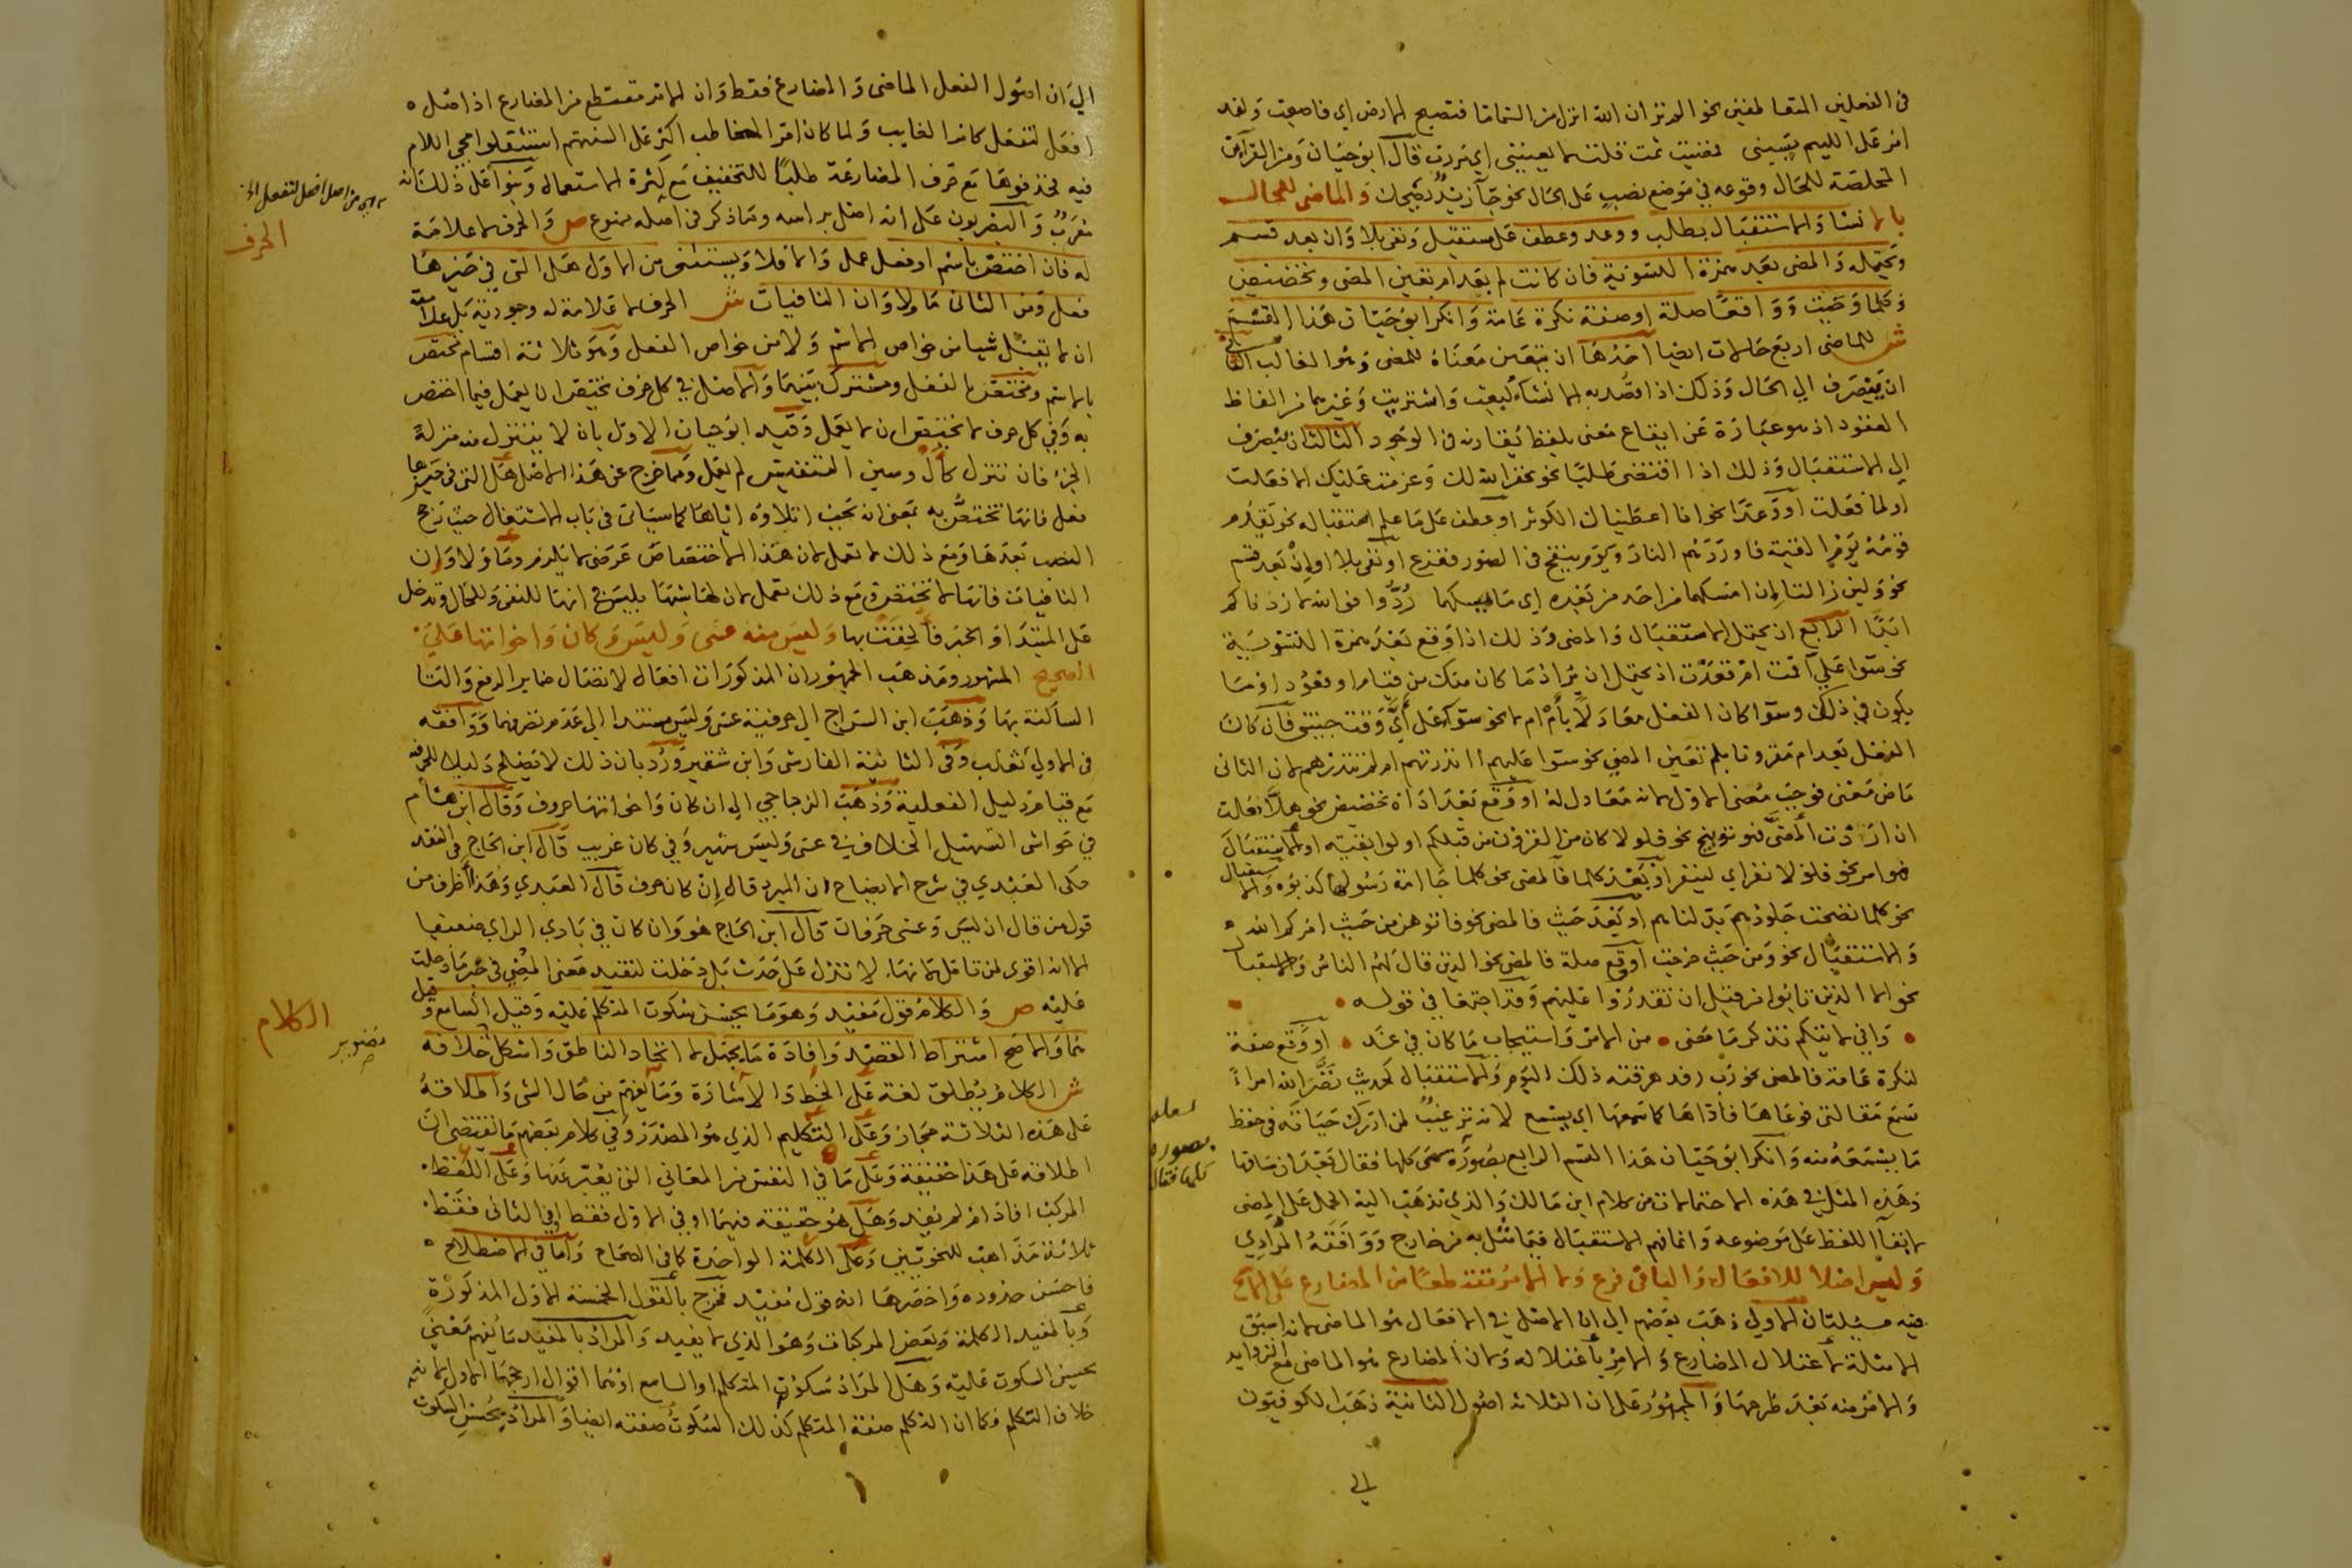 في الفعلين المتعاطفين نحو الم تر ان الله انزل من السماء ماء فتصبح الارض اي فاصبحت ولقد
امر على اللئيم يسبني فمضيت ثمت قلت لا يعنيني اي مررت قال ابو حيان ومن القرائن
المخلصة للحال وقوعه في موضع نصب على الحال نحو جا زيد يضحك والماضى للحال
بالانشا والاستقبال بطلب ووعد وعطف على مستقبل ونفى بلا وان بعد قسم
ويحتمله والمضى بعد همزة التسوية فان كانت لم بعد ام تعين المضى وتحضيض
وكلما وحيث وواقعا صلة او صفة نكرة عامة وانكر ابو حيان هذا القسم
ش للماضى اربع حالات ايضا احدها ان يتعين معناه للمضى وهو الغالب الثاني
ان ينصرف الي الحال وذلك اذا اقصد به الانشاء كبعت واشتريت وغيرهما من الفاظ
العقود اذ هو عبارة عن ايقاع معنى بلفظ يقارنه في الوجود الثالث ان ينصرف
الي الاستقبال وذلك اذا اقتضى طلبا نحو غفر الله لك وعزمت عليك الا فعلت
او لما فعلت او وعدا نحو انا اعطيناك الكوثر او عطف على ما علم استقباله نحو يقدم
قومه يوم القيمة فاوردهم النار ويوم ينفخ في الصور ففزع او نفى بلا او ان بعد قسم
نحو ولئن زالتا ان امسكهما من احد من بعده اي ما يمسكهما ردوا فوالله لا زدناكم
ابدا الرابع ان يحتمل الاستقبال والمضى وذلك اذا وقع بعد همزة التسوية
نحو سوا علي اقمت ام قعدت اذ يحتمل ان يراد ما كان منك من قيام او قعود او ما
يكون في ذلك وسوا كان الفعل معادلا بام ام لا نحو سوا على اي وقت جيتني فان كان
الفعل بعد ام مقرونا بلم تعين المضى نحو سوا عليهم اانذرتهم ام لم تنذرهم لان الثانى
ماض معنى فوجب معنى الاول لانه معادل له او وقع بعد اداة تحضيض نحو هلا فعلت
ان اردت المضى فهو توبيخ نحو فلولا كان من القرون من قبلكم اولوا بقية او الاستقبال
فهو امر نحو فلولا نفر اي لينفر او بعد كلما فالمضى نحو كلما جا امة رسولها كذبوه والاستقبال
نحو كلما نضجت جلودهم بدلناهم او بعد حيث فالمضى نحو فاتوهن من حيث امركم الله
والاستقبال نحو ومن حيث خرجت او وقع صلة فالمضى نحو الذين قال لهم الناس والاستقبال
نحو الا الذين تابوا من قبل ان تقدروا عليهم وقد اجتمعا في قوله
واني لاتيكم تذكر ما مضى من الامر واستيجاب ما كان في غد او وقع صفة
لنكرة عامة فالمضى نحو رب رفد هرقته ذلك اليوم والاستقبال كحديث نضر الله امراً
سمع مقالتى فوعاها فاداها كما سمعها اي يسمع لانه ترغيب لمن ادرك حياته في حفظ
ما يسمعه منه وانكر ابو حيان هذا القسم الرابع بصوره كلها فقال بعد ان ساقها
وهذه المثل في هذه الاحتمالات من كلام ابن مالك والذي نذهب اليه الحمل على المضى
لابقا اللفظ على موضوعه وانما فهم الاستقبال فيما مثل به من خارج ووافقه المرادي
وليس اصلا للافعال والباقى فرع ولا الامر مقتطعا من المضارع على الاصح
فيه مسئلتان الاولي ذهب بعضهم الي ان الاصل في الافعال هو الماضى لانه اسبق
الامثلة لاعتلال المضارع والامر باعتلاله ولان المضارع هو الماضى مع الزوايد
والامر منه بعد طرحها والجمهور على ان الثلاثة اصول الثانية ذهب الكوفيون
الي
بصوره
كلها فقال
الي ان اصول الفعل الماضى والمضارع فقط وان الامر مقتطع من المضارع اذ اصل
افعل لتفعل كامر الغايب ولما كان امر المخاطب اكثر على السنتهم استثقلوا مجي اللام
فيه فحذفوها مع حرف المضارعة طلبا للتخفيف مع كثرة الاستعمال وبنوا على ذلك انه
معرب والبصريون على انه اصل براسه وما ذكر من اصله ممنوع ص والحرف لا علامة
له فان اختص باسم او فعل عمل والا فلا ويستثنى من الاول هل التى في حيزها
فعل ومن الثانى ما ولا وان النافيات ش الحرف لا علامة له وجودية بل علامته
ان لا يقبل شيا من خواص الاسم ولا من خواص الفعل وهو ثلاثة اقسام مختص
بالاسم ومختص بالفعل ومشترك بينهما والاصل في كل حرف يختص ان يعمل فيما اختص
به وفي كل حرف لا يختص ان لا يعمل وقيد ابو حيان الاول بان لا يتنزل منه منزلة
الجزء فان تنزل كال وسين التنفيس لم يعمل ومما خرج عن هذا الاصل هل التى في حيزها
فعل فانها تختص به بمعنى انه يجب ايلاوه اياها كما سياتى في باب الاشتغال حيث رجح
النصب بعدها ومع ذلك لا تعمل لان هذا الاختصاص عرضى لا يلزم وما ولا وان
النافيات فانها لا تختص ومع ذلك تعمل لان لها شبها بليس في انها للنفى وللحال وتدخل
على المبتدا والخبر فالحقت بها وليس منه عسى وليس وكان واخواتها على
الصحيح المشهور ومذهب الجمهور ان المذكورات افعال لاتصال ضماير الرفع والتا
الساكنة بها وذهب ابن السراج الي حرفية عسى وليس مستندا الي عدم تصرفهما ووافقه
في الاولي ثعلب وفي الثانية الفارسى وابن شقير ورد بان ذلك لا يصلح دليلا للحرفية
مع قيام دليل الفعلية وذهب الزجاجي الي ان كان واخواتها حروف وقال ابن هشام
في حواشى التسهيل الخلاف في عسى وليس شهير وفي كان غريب قال ابن الحاج في النقد
حكى العبدي في شرح الايضاح ان المبرد قال ان كان حرف قال العبدي وهذا اظرف من
قول من قال ان ليس وعسى حرفان قال ابن الحاج هو وان كان في بادي الراي ضعيفا
الا انه اقوى لمن تامل لانها لا تدل على حدث بل دخلت لتفيد معنى المضي في خبر ما دخلت
عليه ص والكلام قول مفيد وهو ما يحسن سكوت المتكلم عليه وقيل السامع وقيل
هما والاصح اشتراط القصد وافادة ما يجهل لا اتحاد الناطق واشكل خلافه
ش الكلام يطلق لغة على الخط والاشارة وما يفهم من حال الشى واطلاقه
على هذه الثلاثة مجاز وعلى التكليم الذي هو المصدر وفي كلام بعضهم ما يقتضى ان
اطلاقه على هذا حقيقة وعلى ما في النفس من المعاني التى يعبر عنها وعلى اللفظ
المركب افاد ام لم يفد وهل هو حقيقة فيهما او في الاول فقط او في الثانى فقط
ثلاثة مذاهب للنحويين وعلى الكلمة الواحدة كما في الصحاح واما في الاصطلاح
فاحسن حدوده واخصرها انه قول مفيد فخرج بالقول الخمسة الاول المذكورة
وبالمفيد الكلمة وبعض المركبات وهو الذي لا يفيد والمراد بالمفيد ما يفهم معنى
يحسن السكوت عليه وهل المراد سكوت المتكلم او السامع او هما اقوال ارجحها الاول لانه
خلاف التكلم فكما ان التكلم صفة المتكلم كذلك السكوت صفته ايضا والمراد بحسن السكوت
اي من اصل افعل لتفعل الخ
الحرف
الكلام